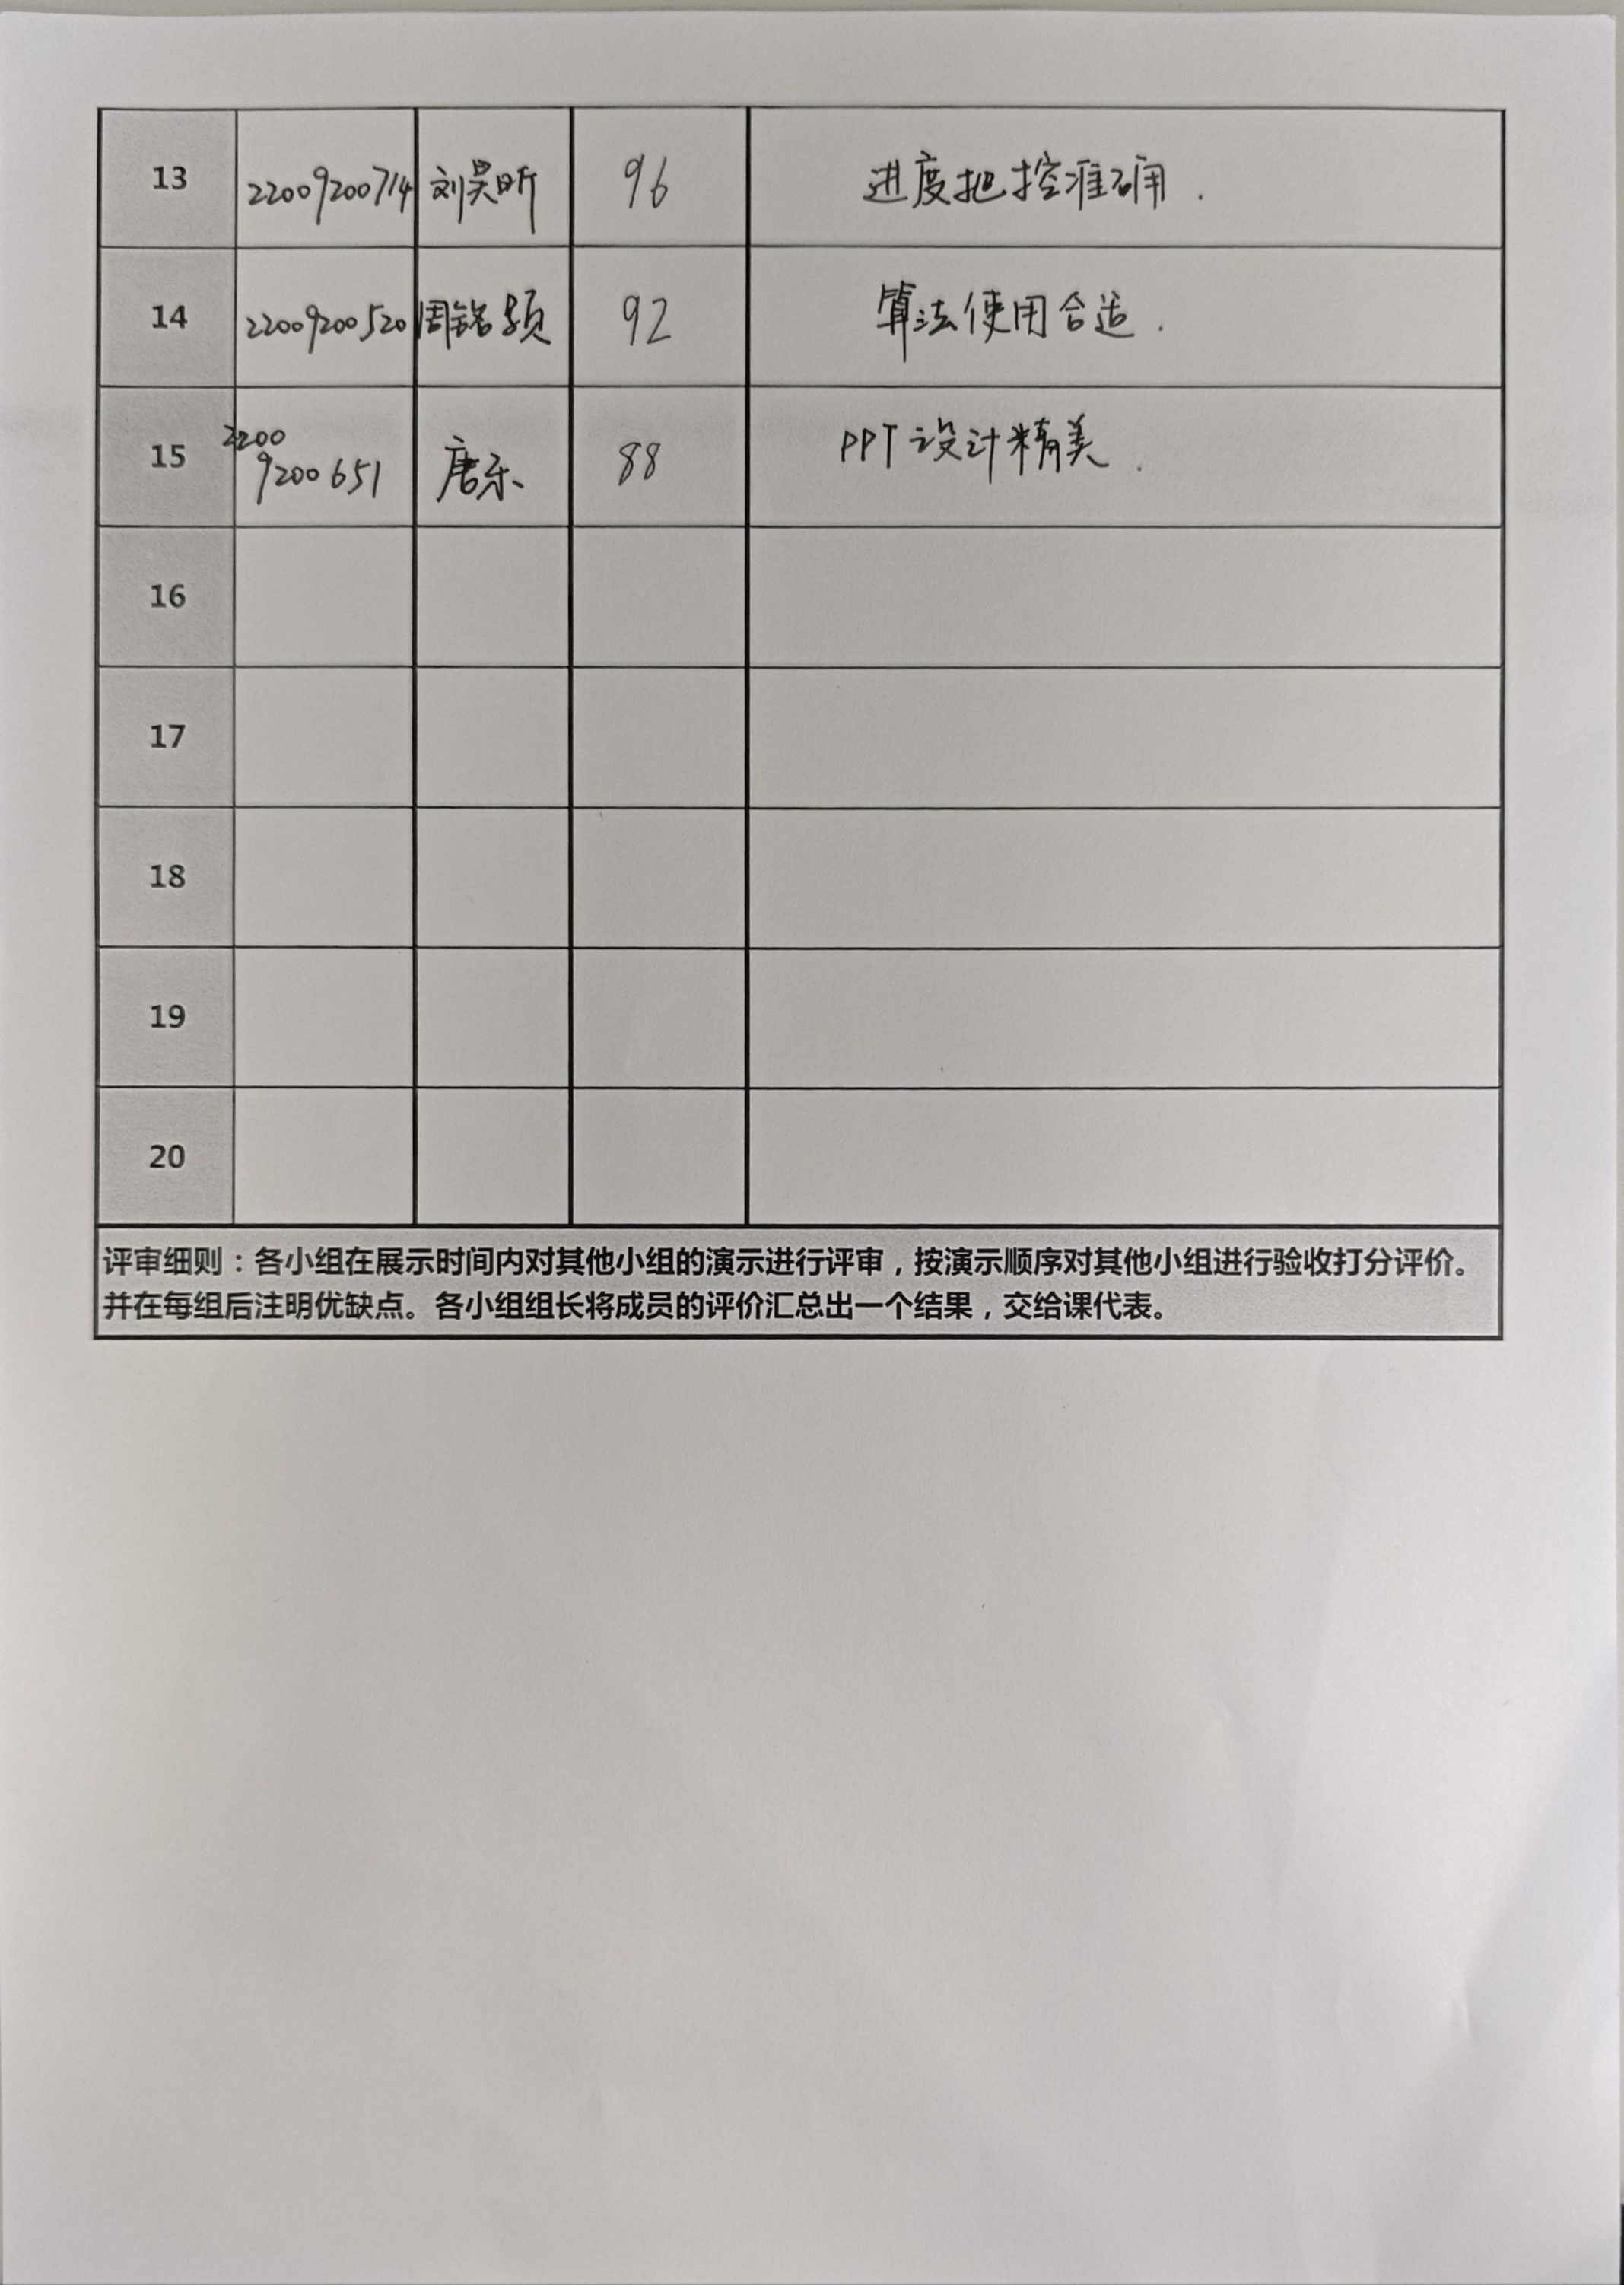 13 22009200714 刘昊昕 96 进度把控准确.
14 22009200520 周铭颖 92 算法使用合适.
15 22009200651 唐乐 88 PPT设计精美.
16
17
18
19
20
评审细则：各小组在展示时间内对其他小组的演示进行评审，按演示顺序对其他小组进行验收打分评价。
并在每组后注明优缺点。各小组组长将成员的评价汇总出一个结果，交给课代表。